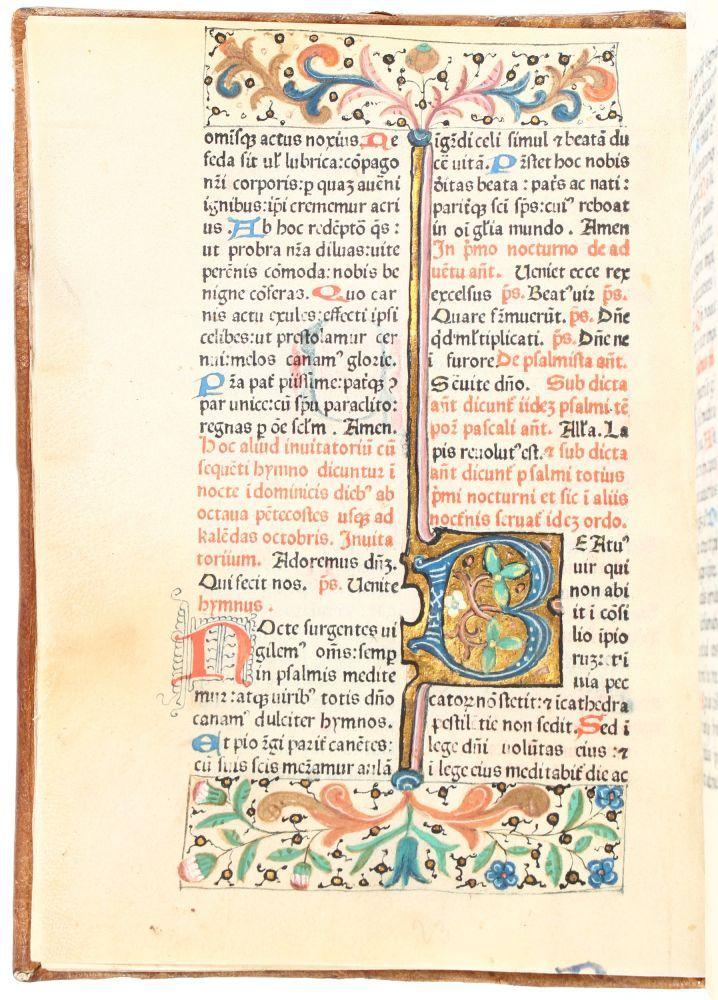 omīsq̄ꝫ actus noxius. Ne
feda sit ul' lubrica: cōpago
nr̄i corporis: ꝑ quaꝫ auēni
ignibus: ip̄i crememur acri
us. Ab hoc redēptō q̄s:
ut probra nr̄a diluas: uite
perēnis cōmoda: nobis be
nigne cōferas. Quo car
nis actu exules: effecti ipsi
celibes: ut prestolamur cer
nui: melos canamꝰ glorie.
Pr̄a pat̄ piissime: patꝗꝫ ↄ
par unice: cū sp̄u paraclito:
regnas ꝑ oē sclm̄. Amen.
Hoc aliud inuitatoriū cū
sequēti hymno dicuntur ī
nocte ī dominicis diebꝰ ab
octaua pētecostes usꝗꝫ ad
kalēdas octobris. Inuita
toriium. Adoremus dn̄ꝫ.
Qui fecit nos. p̄s. Uenite
hymnus.
Nocte surgentes ui
gilemꝰ om̄s: semꝑ
in psalmis medite
mur: atꝗꝫ uiribꝰ totis dn̄o
canamꝰ dulciter hymnos.
Ut pio r̄gi parit̄ canētes:
cū suis scis mer̄amur aulā
igr̄di celi simul ⁊ beatā du
cē uitā. Pr̄stet hoc nobis
d̄itas beata: pat̄s ac nati:
parit̄ꝗꝫ sc̄i sp̄s: cuiꝰ reboat
in oī gl̄ia mundo. Amen
In p̄mo nocturno de ad
uētu ant̄. Ueniet ecce rex
excelsus p̄s. Beatꝰ uir p̄s.
Quare fr̄muerūt. p̄s. Dn̄e
qd̄ ml̄tiplicati. p̄s. Dn̄e ne
ī furore De psalmista ant̄.
Seuite dn̄o. Sub dicta
ant̄ dicunt̄ iideꝫ psalmi. tē
por̄ pascali ant̄. Alla. La
pis reuolutꝰ est. ⁊ sub dicta
ant̄ dicunt̄ psalmi totius
p̄mi nocturni et sic ī aliis
noct̄nis seruat̄ ideꝫ ordo.
BEAtuꝰ
uir qui
non abi
it ī cōsi
lio īpio
ruꝫ: ⁊ ī
uia pec
catoꝝ nō stetit: ⁊ ī cathedra
pestilētie non sedit. Sed ī
lege dn̄i uolūtas eius: ⁊
ī lege eius meditabit̄ die ac